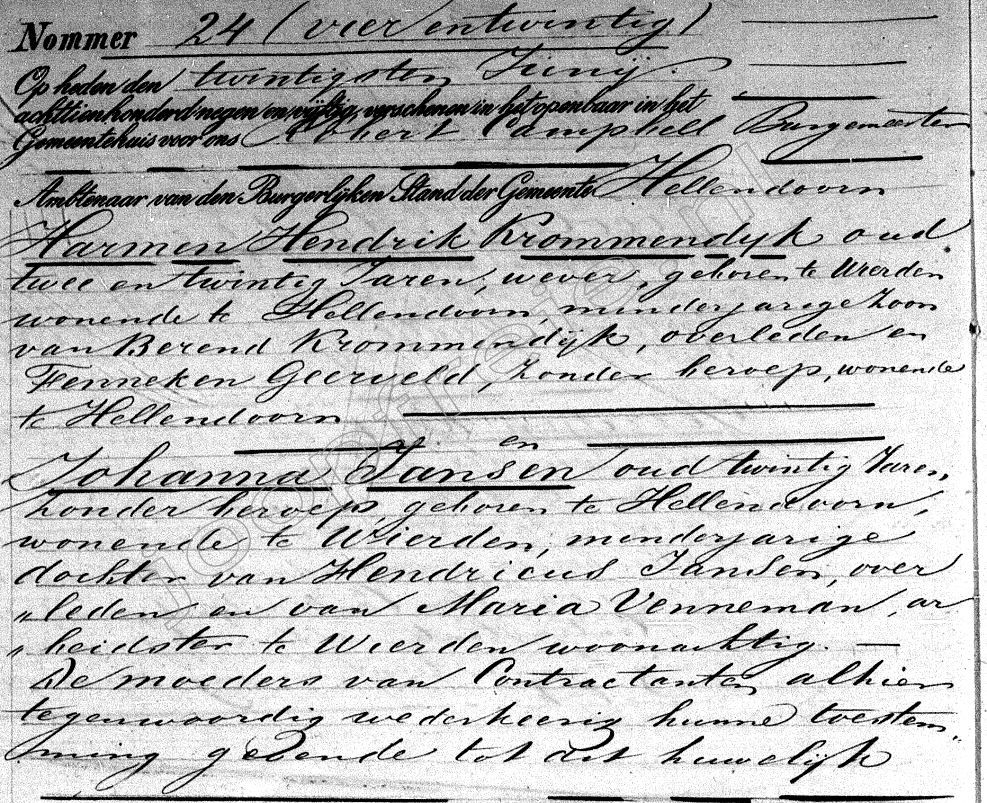 Nommer 24 (vier en twintig)
Op heden den twintigsten Junij.
achttienhonderd negen en vijftig, verschenen in het openbaar in het
Gemeentehuis voor ons Robert Campbell Burgemeester
Ambtenaar van den Burgerlijken Stand der Gemeente Hellendoorn
Harmen Hendrik Krommendyk oud
twee en twintig Jaren, wever, geboren te Wierden
wonende te Hellendoorn, minderjarige Zoon
van Berend Krommendijk, overleden en
Fenneken Geerveld, zonder beroep, wonende
te Hellendoorn
en
Johanna Jansen oud twintig Jaren,
zonder beroep, geboren te Hellendoorn,
wonende te Wierden, minderjarige
dochter van Hendricus Jansen, over
„leden, en van Maria Venneman, ar
„beidster te Wierden woonachtig. —
De moeders van Contractanten alhier
tegenwoordig wederkeerig hunne toestem„
„ming gevende tot dit huwelijk